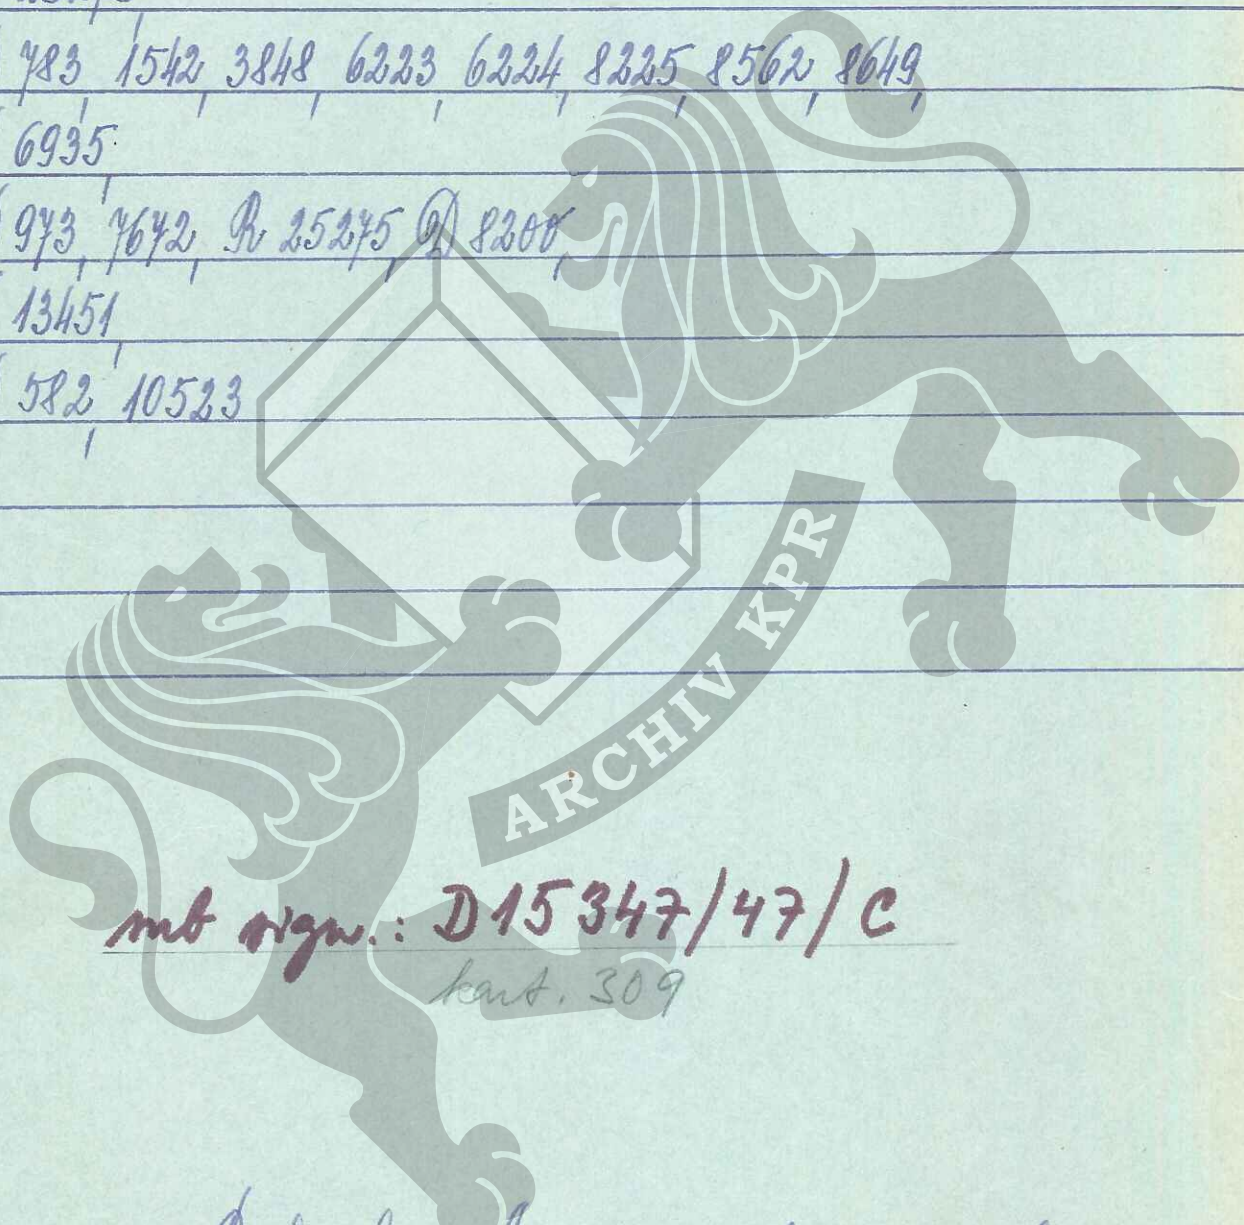 783, 1542, 3848, 6223, 6224, 8225, 8562, 8649,
6935,
973, 7672, R 25275, D 8200,
13451,
582, 10523
ARCHIV KPR
sub sign.: D 15347/47/C
kart. 309